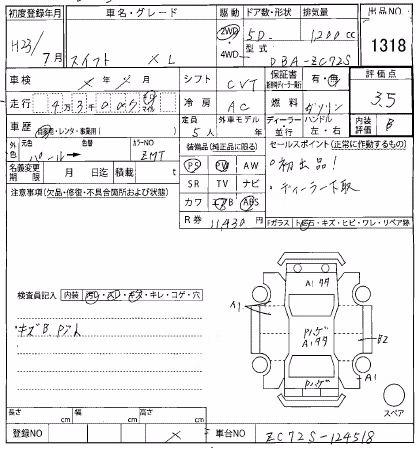 初度登録年月 車名・グレード 駆動 ドア数・形状 排気量 出品NO
H23/7月 スイフト XL 2WD 4WD 5D 1200cc 1318
型式 DBA-ZC72S
車検 × 年 / 月 シフト CVT 保証書 有・無 評価点
走行 4万3千0007 キロ マイル 冷房 AC 燃料 ガソリン 3.5
車歴 自家用・レンタ・事業用( ) 定員 5人 外車モデル 年 ディーラー 並行 ハンドル 左・右 内装評価 B
外色 元色 パール 色替 カラーNO ZMT
装備品(純正品に限る) セールスポイント(正常に作動するもの)
名義変更期限 月 日迄 積載 t
PS PW AW
初出品!
SR TV ナビ
ディーラー下取
カワ エアB ABS
注意事項(欠品・修復・不具合箇所および状態)
R券 11,430円 Fガラス トビ石・キズ・ヒビ・ワレ・リペア跡
検査員記入 内装 汚レ・スレ・キズ・キレ・コゲ・穴
キズB Pアト
A1
A1タタ
Pハゲ
A1タタ
B2
Pハゲ
A1
スペア
長さ cm 幅 cm 高さ cm
登録NO × 車台NO ZC72S-124518